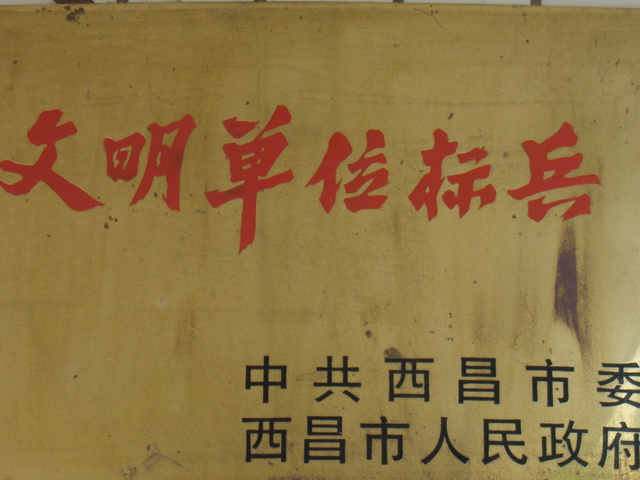 文明单位标兵
中共西昌市委
西昌市人民政府